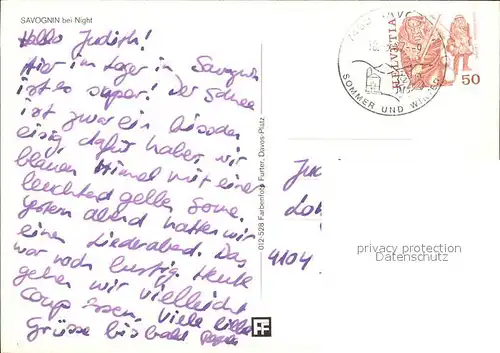 SAVOGNIN bei Night
Hallo Judith!
Hier im Lager in Savognin
ist es super! Der Schnee
ist zwar ein bisschen
eisig, dafür haben wir
blauen Himmel mit einer
leuchtend gelben Sonne.
Gestern abend hatten wir
einen Liederabend. Das
war noch lustig. Heute
gehen wir vielleicht
Coup essen. Viele liebe
Grüsse bis bald
012-528 Farbenfoto Furter, Davos-Platz
HELVETIA
50
SOMMER UND WINTER
Jud
4104
privacy protection
Datenschutz